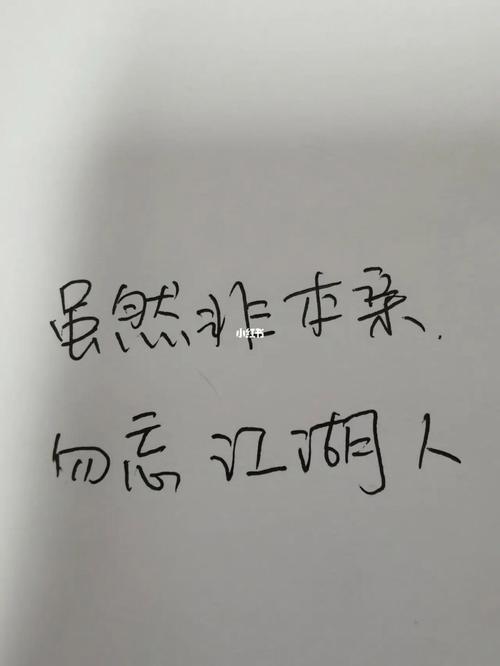 虽然非本亲.
小红书
勿忘江湖人